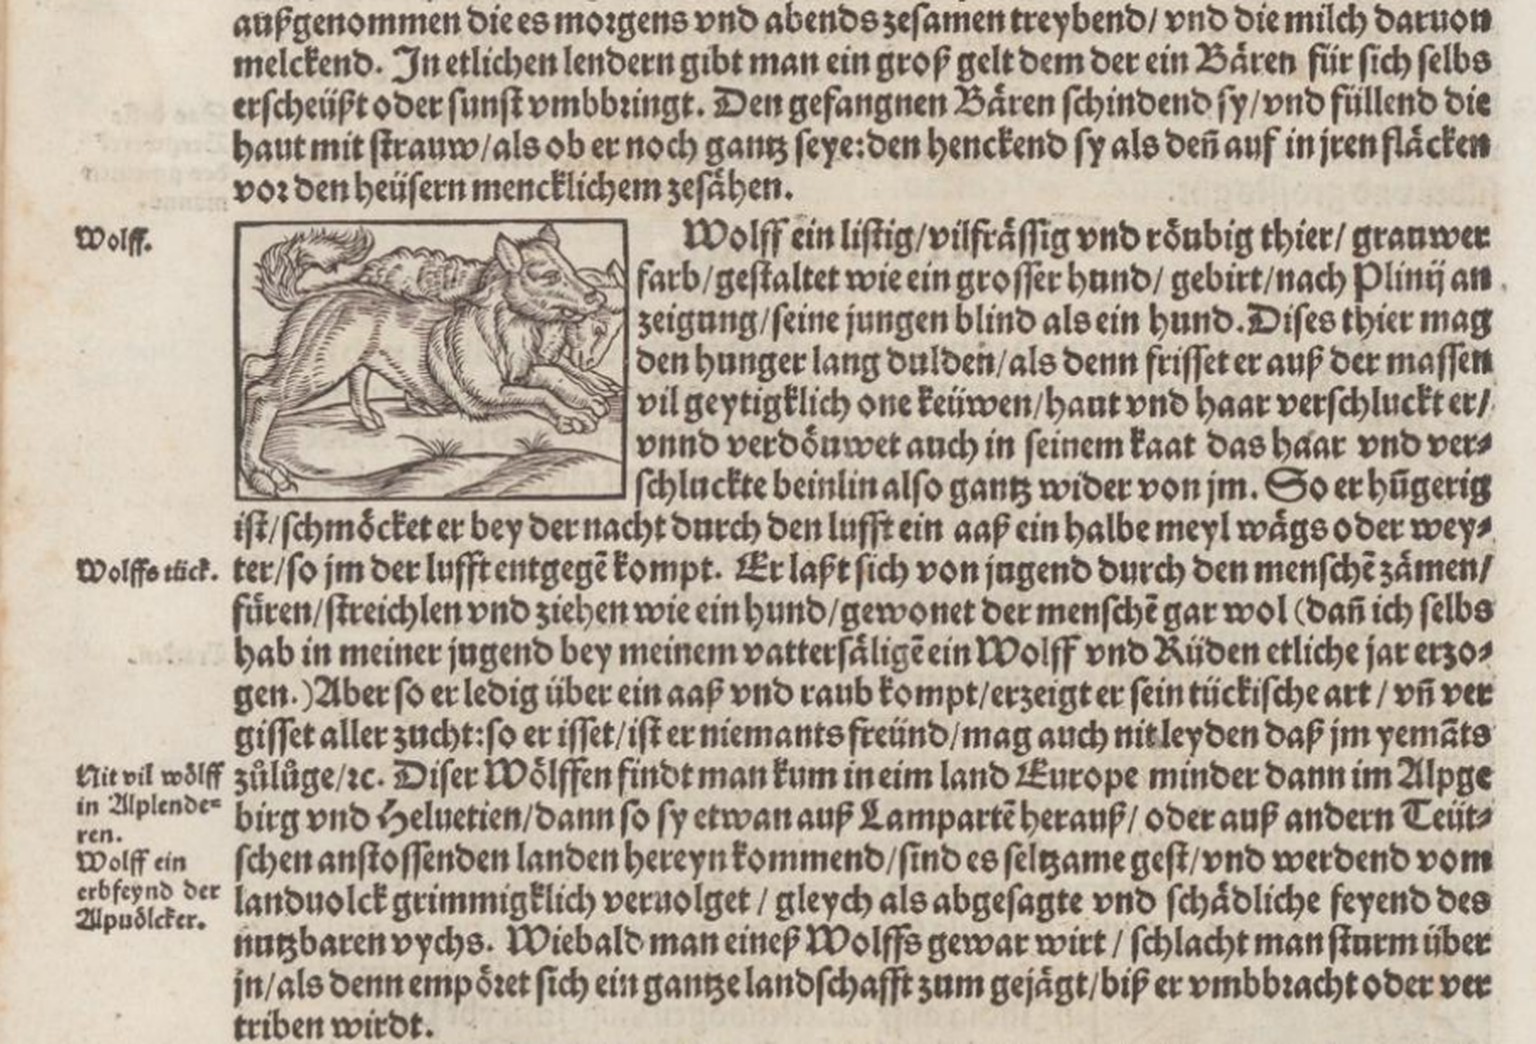 außgenommen die es morgens vnd abends zesamen treybend/ vnd die milch daruon
melckend. In etlichen lendern gibt man ein groß gelt dem der ein Bären für sich selbs
erscheüßt oder sunst vmbbringt. Den gefangnen Bären schindend sy/vnd füllend die
haut mit strauw/als ob er noch gantz seye:den henckend sy als deñ auf in jren fläcken
vor den heüsern mencklichem zesähen.
Wolff.
Wolff ein listig/vilfrässig vnd röubig thier/ grauwer
farb/gestaltet wie ein grosser hund/ gebirt/nach Plinij an
zeigung/seine jungen blind als ein hund. Dises thier mag
den hunger lang dulden/als denn frisset er auß der massen
vil geytigklich one keüwen/haut vnd haar verschluckt er/
vnnd verdöuwet auch in seinem kaat das haar vnd ver⸗
schluckte beinlin also gantz wider von jm. So er hũgerig
ist/schmöcket er bey der nacht durch den lufft ein aaß ein halbe meyl wägs oder wey⸗
Wolffs tück.
ter/so jm der lufft entgegẽ kompt. Er laßt sich von jugend durch den menschẽ zämen/
füren/streichlen vnd ziehen wie ein hund/gewonet der menschẽ gar wol (dañ ich selbs
hab in meiner jugend bey meinem vatter säligẽ ein Wolff vnd Rüden etliche jar erzo⸗
gen.) Aber so er ledig über ein aaß vnd raub kompt/erzeigt er sein tückische art / vñ ver
gisset aller zucht:so er isset/ist er niemants freünd/mag auch nit leyden daß jm yemãts
Nit vil wölff
in Alplende⸗
ren.
zůlůge/ꝛc. Diser Wölffen findt man kum in eim land Europe minder dann im Alpge
birg vnd Heluetien/dann so sy etwan auß Lampartẽ herauß/ oder auß andern Teüt⸗
Wolff ein
erbfeynd der
Alpuölcker.
schen anstossenden landen hereyn kommend/sind es seltzame gest/vnd werdend vom
landuolck grimmigklich veruolget / gleych als abgesagte vnd schädliche feyend des
nutzbaren vychs. Wiebald man eineß Wolffs gewar wirt / schlacht man sturm über
jn/als denn empöret sich ein gantze landschafft zum gejägt/biß er vmbbracht oder ver
triben wirdt.